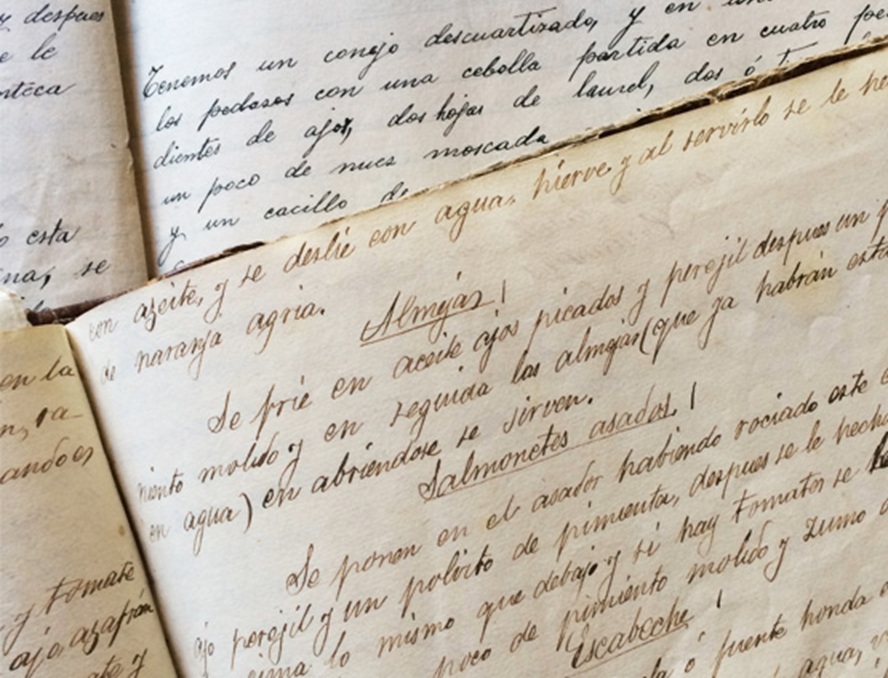 y despues
e le
nteca
esta
na, se
Tenemos un conejo descuartizado, y en
los pedasos con una cebolla partida en cuatro
dientes de ajos, dos hojas de laurel, dos ó
un poco de nuez moscada
y un cacillo de
con azeite, y se deslie con agua, hierve y al servirlo se le
de naranja agria.
Almejas
Se frie en aceite ajos picados y perejil despues un
miento molido y en seguida las almejas (que ya habrán
en agua) en abriendose se sirven.
Salmonetes asados
Se ponen en el asador habiendo rociado este
ajo perejil y un polvito de pimienta, despues se le hecha
lo mismo que debajo y si hay tomates se
poco de pimiento molido y zumo
Escabeche
ó fuente honda
agua, y
en la
n, ra-
ando es
y tomate
ajo azafrán
y